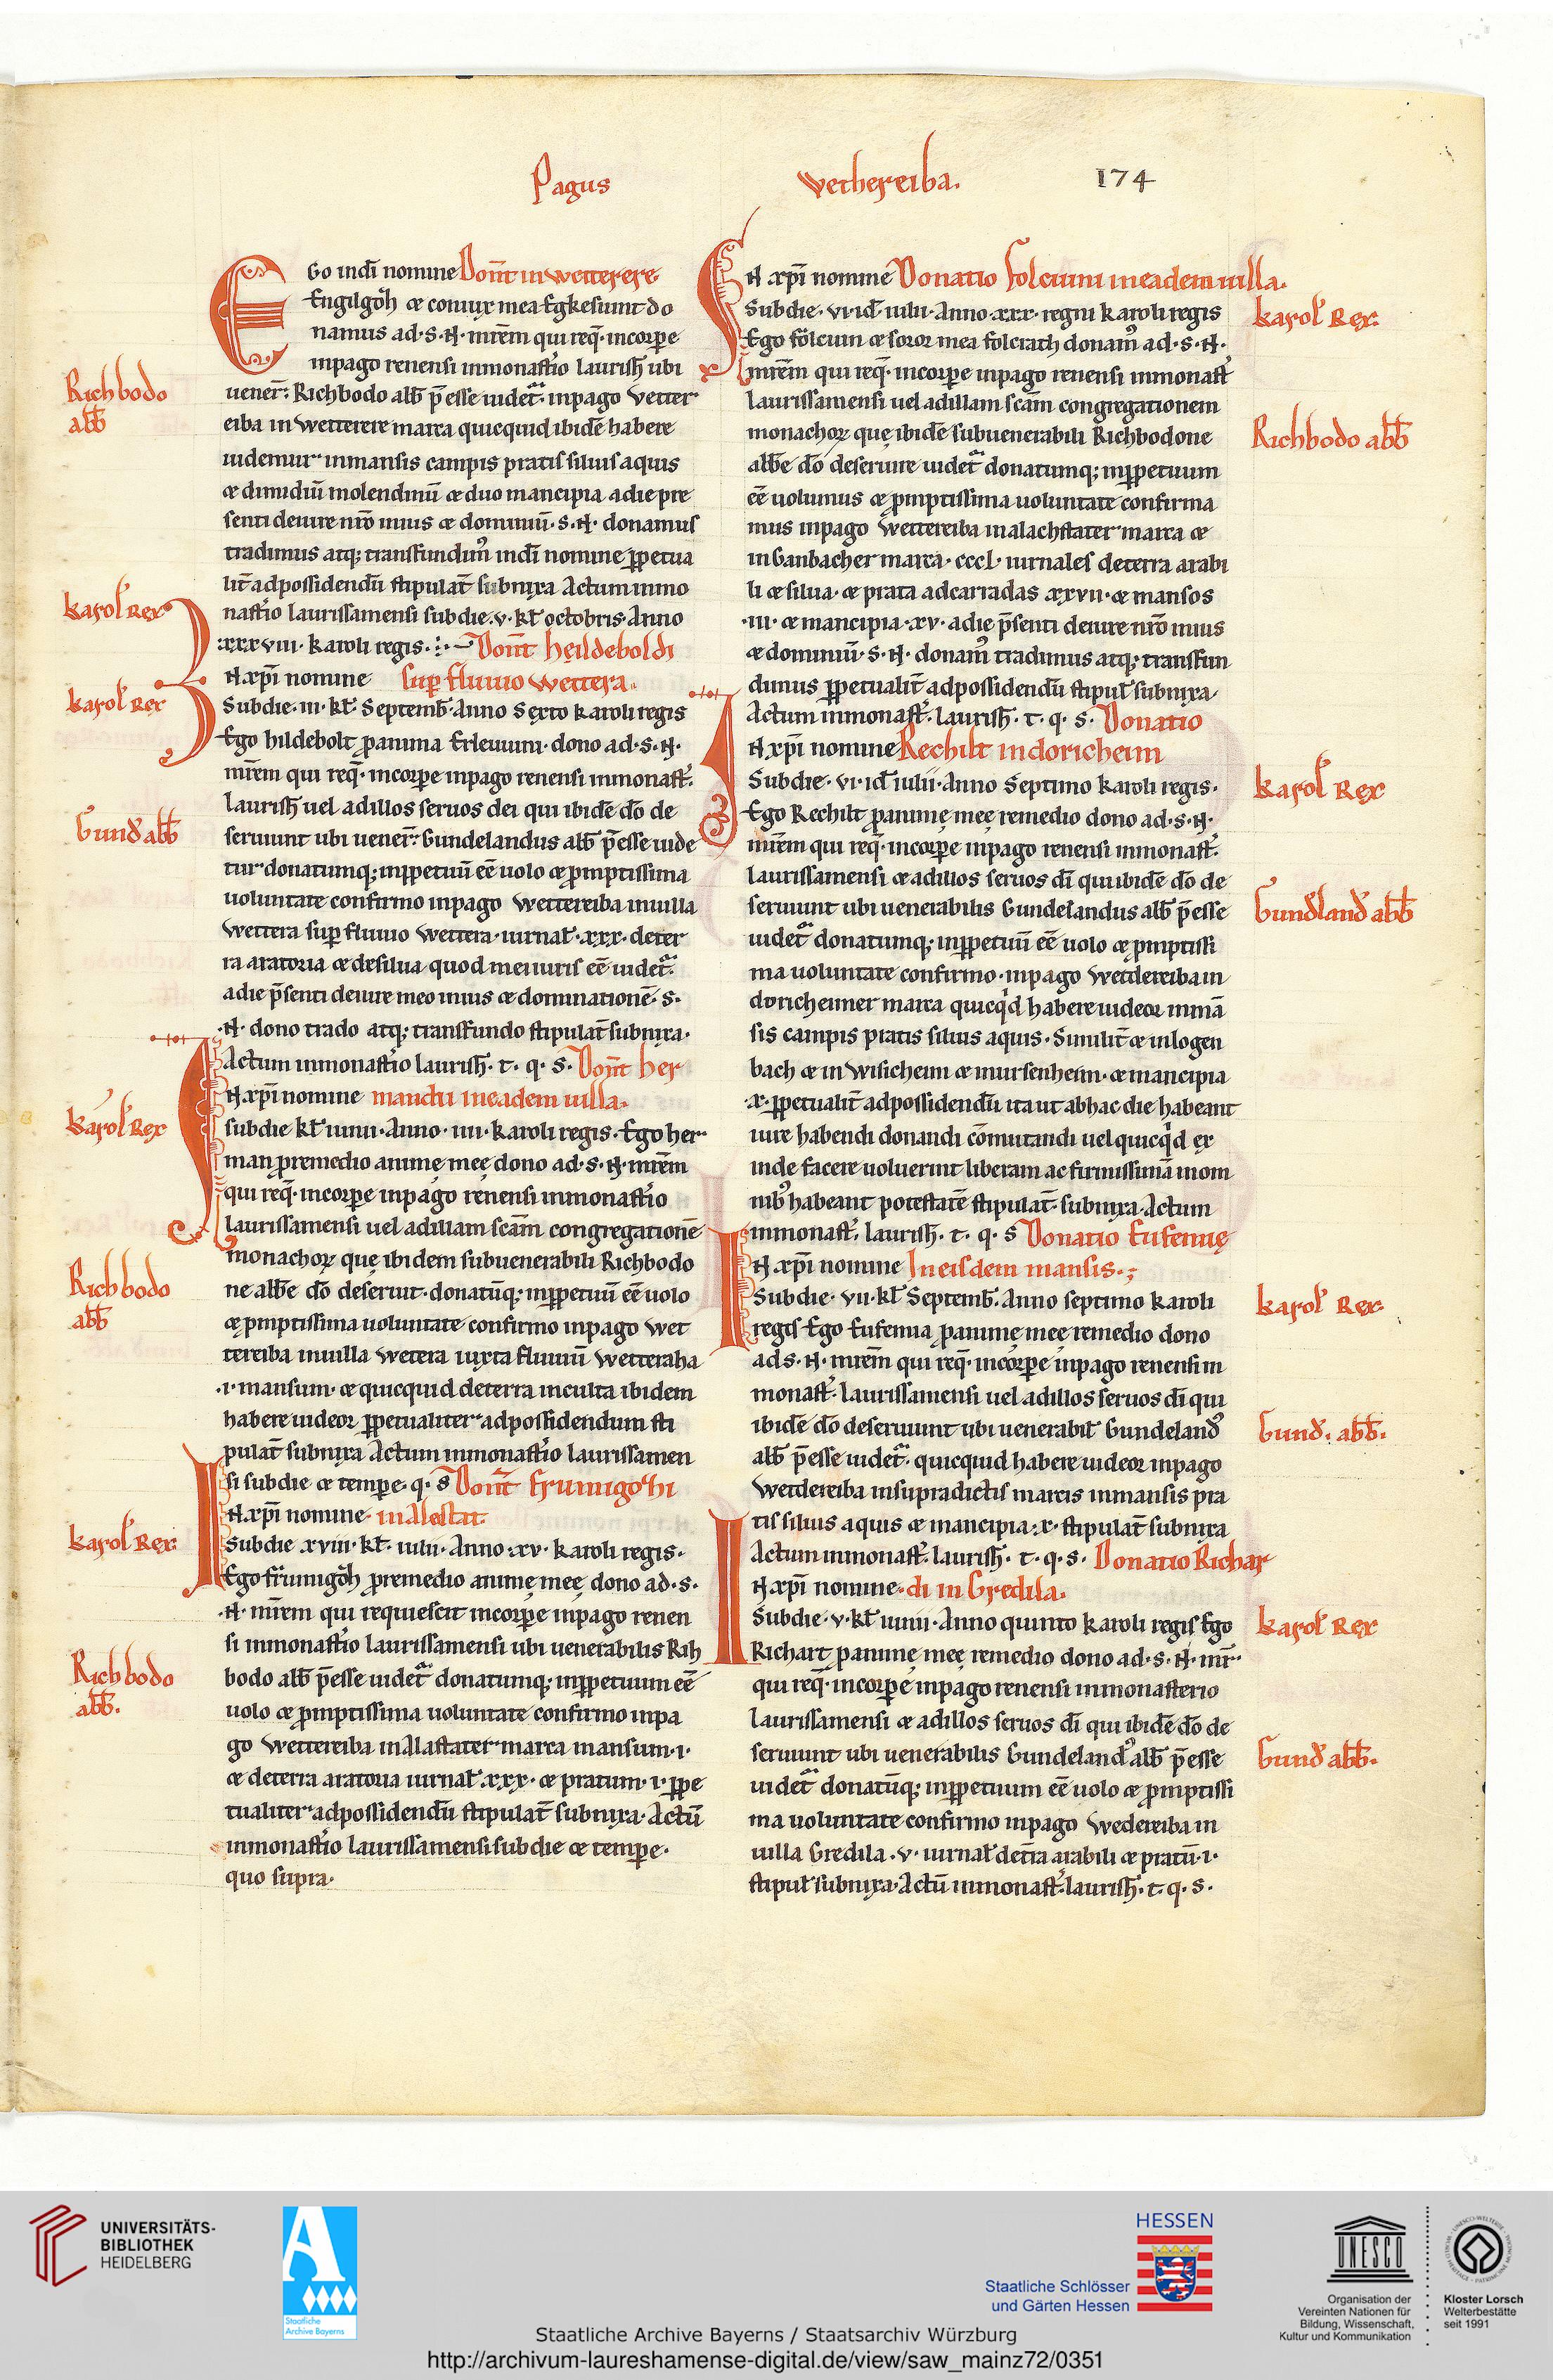 Pagus Wethereiba. 174
Ego in dī nomine Donat̄ in Wetterere
Engilgōh et coniux mea Egkesuint do
namus ad·s·N·mr̄em qui req̄·in corꝑe
in pago renensi in monast̄io laurish̄ ubi
uener̄·Richbodo abb̄ p̄esse uidet̄·in pago Vetter
eiba in Wetterere marca quicquid ibidē habere
uidemur in mansis campis pratis siluis aquis
et dimidiū molendinū et duo mancipia a die pre
senti de iure nr̄o in ius et dominiū·s·N·donamus
tradimus atq; transfundim᷒ in dī nomine ꝑpetua
lit̄ ad possidendū stipulat̄ subnixa Actum in mo
nast̄io laurissamensi sub die·v·kl̄ octobris·Anno
·xxxviii·karoli regis·:·~ Donat̄ heildeboldi
N xp̄i nomine sup̄ fluuio Wettera.
Subdie·iii·kl̄·Septemb̄·Anno Sexto karoli regis
Ego hildebolt ꝓ anima Erleuuini·dono ad·s·N·
mr̄em qui req̄·in corꝑe in pago renensi in monast̄.
laurish̄ uel ad illos seruos dei qui ibidē dō de
seruiunt ubi uener̄·Gundelandus abb̄ p̄esse uide
tur donatumq; in ꝑpetuū eē uolo et ꝓmptissima
uoluntate confirmo in pago Wettereiba in uilla
Wettera sup̄ fluuio Wettera·iurnal̄·xxx·de ter
ra aratoria et de silua quod mei iuris eē uidet̄.
a die p̄senti de iure meo in ius et dominationē·s·
·N·dono trado atq; transfundo stipulat̄ subnixa·
Actum in monast̄io laurish̄·t·q·s·Donat̄ her
N xp̄i nomine manni in eadem uilla.
sub die kl̄ iunii·Anno·iiii·karoli regis·Ego her
man ꝓ remedio animę meę dono ad·s·N·mr̄em
qui req̄·in corꝑe in pago renensi in monast̄io
laurissamensi uel ad illam scām congregationē
monachoꝝ quę ibidem sub uenerabili Richbodo
ne abb̄e dō deseruit·donatūq; in ꝑpetuū eē uolo
et ꝓmptissima uoluntate confirmo in pago Wet
tereiba in uilla Wetera iuxta fluuiū Wetteraha
·i·mansum·et quicquid de terra inculta ibidem
habere uideor ꝑpetualiter ad possidendum sti
pulat̄ subnixa Actum in monast̄io laurissamen
si sub die et temꝑe·q·s Donat̄ frumigohi
N xp̄i nomine·in Alestat.
Subdie xviii·kl̄·iulii·Anno·xv·karoli regis·
Ego frumigōh ꝓ remedio animę meę dono ad·s·
·N·mr̄em qui requiescit in corꝑe in pago renen
si in monast̄io laurissamensi ubi uenerabilis Rih
bodo abb̄ p̄esse uidet̄ donatumq; in ꝑpetuum eē
uolo et ꝓmptissima uoluntate confirmo in pa
go Wettereiba in Alastater marca mansum·i·
et de terra aratoria iurnal̄ xxx·et pratum·i·ꝑpe
tualiter ad possidendū stipulat̄ subnixa·Actū
in monast̄io laurissamensi sub die et temꝑe·
quo supra·
Richbodo
abb̄
karol̄ Rex
karol̄ Rex
Gund̄ abb̄
karol̄ Rex
Richbodo
abb̄
karol̄ Rex
Richbodo
abb̄.
N xp̄i nomine Donatio folcuuini in eadem uilla.
Sub die·vi·id̄·iulii·Anno·xxx·regni karoli regis
Ego folcuin et soror mea folcrath donam᷒ ad·s·N·
mr̄em qui req̄·in corꝑe in pago renensi in monast̄
laurissamensi uel ad illam scām congregationem
monachoꝝ quę ibidē sub uenerabili Richbodone
abb̄e dō deseruire uidet̄ donatumq; in ꝑpetuum
eē uolumus et ꝓmptissima uoluntate confirma
mus in pago Wettereiba in alachstater marca et
in Ganbacher marca·cccl·iurnales de terra arabi
li et silua·et prata ad carradas xxvii·et mansos
·iii·et mancipia·xv·a die p̄senti de iure nr̄o in ius
et dominiū·s·N·donam᷒ tradimus atq; transfun
dimus ꝑpetualit̄ ad possidendū stipul̄ subnixa
Actum in monast̄·laurish̄·t·q·s·Donatio
N xp̄i nomine Rechilt in doricheim
Subdie·vi·id̄ iulii·Anno Septimo karoli regis·
Ego Rechilt ꝓ animę meę remedio dono ad·s·N·
mr̄em qui req̄·in corꝑe in pago renensi in monast̄.
laurissamensi et ad illos seruos dī qui ibidē dō de
seruiunt ubi uenerabilis Gundelandus abb̄ p̄esse
uidet̄ donatumq; in ꝑpetuū eē uolo et ꝓmptissi
ma uoluntate confirmo·in pago Wetdereiba in
doricheimer marca quicq̇d habere uideor in mā
sis campis pratis siluis aquis·Similit̄ et in logen
bach et in Wisicheim et in ursenheim·et mancipia
·x·ꝑpetualit̄ ad possidendū ita ut ab hac die habeant
iure habendi donandi cōmutandi uel quicq̇d ex
inde facere uoluerint liberam ac firmissimā in om
nib᷒ habeant potestatē stipulat̄·subnixa·Actum
in monast̄·laurish̄·t·q·s Donatio Eufemię
N xp̄i nomine In eisdem mansis·;
Subdie·vii·kl̄ Septemb̄·Anno septimo karoli
regis Ego Eufemia ꝓ animę meę remedio dono
ad s·N·mr̄em qui req̄·in corꝑe in pago renensi in
monast̄·laurissamensi uel ad illos seruos dī qui
ibidē dō deseruiunt ubi uenerabil̄ Gundeland᷒
abb̄ p̄esse uidet̄·quicquid habere uideor in pago
Wetdereiba in supradictis marcis in mansis pra
tis siluis aquis et mancipia·x·stipulat̄ subnixa
Actum in monast̄·laurish̄·t·q·s·Donatio Richar
N xp̄i nomine·di in Gredila.
Subdie·v·kl̄ iunii·Anno quinto karoli regis Ego
Richart ꝓ animę meę remedio dono ad·s·N·mr̄
qui req̄·in corꝑe in pago renensi in monasterio
laurissamensi et ad illos seruos dī qui ibidē dō de
seruiunt ubi uenerabilis Gundeland᷒ abb̄ p̄esse
uidet̄ donatūq; in ꝑpetuum eē uolo et ꝓmptissi
ma uoluntate confirmo in pago Wedereiba in
uilla Gredila·v·iurnal̄ de t̄ra arabili et pratū·i·
stipul̄ subnixa·Actū in monast̄·laurish̄·t·q·s·
karol̄ Rex
Richbodo abb̄
karol̄ Rex
Gundland̄ abb̄
karol̄ Rex
Gund̄·abb̄.
karol̄ Rex
Gund̄ abb̄.
UNIVERSITÄTS-
BIBLIOTHEK
HEIDELBERG
Staatliche
Archive Bayerns
HESSEN
Staatliche Schlösser
und Gärten Hessen
UNESCO
Organisation der
Vereinten Nationen für
Bildung, Wissenschaft,
Kultur und Kommunikation
Kloster Lorsch
Welterbestätte
seit 1991
Staatliche Archive Bayerns / Staatsarchiv Würzburg
http://archivum-laureshamense-digital.de/view/saw_mainz72/0351